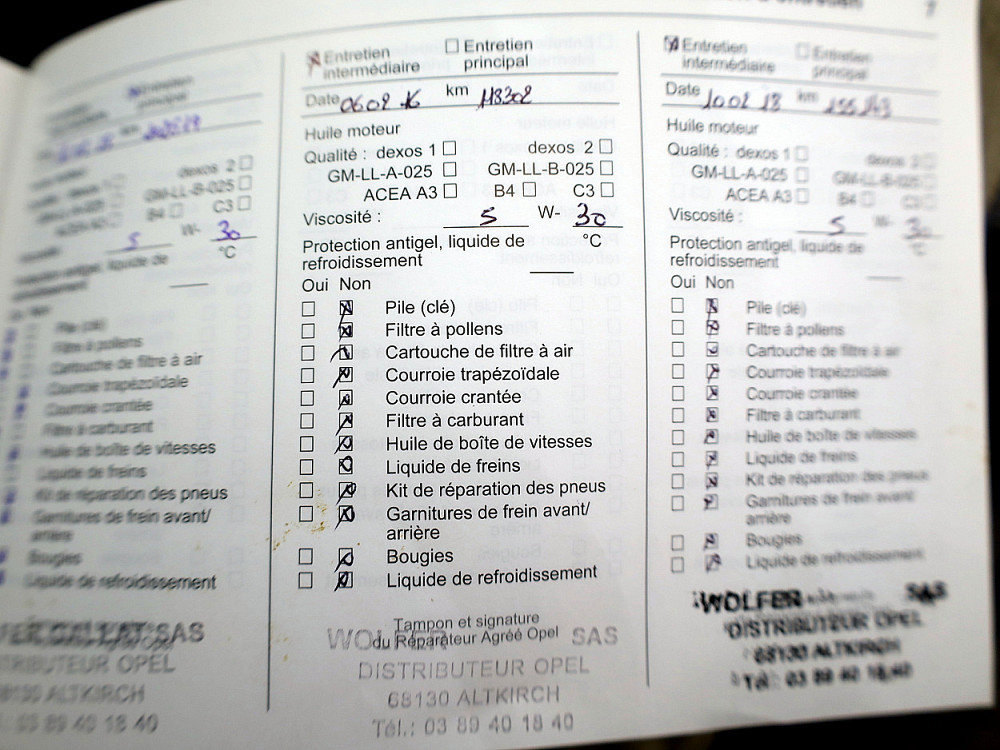 Entretien
principal
dexos 2
GM-LL-B-025
B4 C3
5 W- 30
°C
Pile (clé)
Filtre à pollens
Cartouche de filtre à air
Courroie trapézoïdale
Courroie crantée
Filtre à carburant
Huile de boîte de vitesses
Liquide de freins
Kit de réparation des pneus
Garnitures de frein avant/
arrière
Bougies
Liquide de refroidissement
SAS
DISTRIBUTEUR OPEL
68130 ALTKIRCH
03 89 40 18 40
Entretien Entretien
intermédiaire principal
Date 06 02 16 km 118302
Huile moteur
Qualité : dexos 1 dexos 2
GM-LL-A-025 GM-LL-B-025
ACEA A3 B4 C3
Viscosité : 5 W- 30
Protection antigel, liquide de °C
refroidissement
Oui Non
Pile (clé)
Filtre à pollens
Cartouche de filtre à air
Courroie trapézoïdale
Courroie crantée
Filtre à carburant
Huile de boîte de vitesses
Liquide de freins
Kit de réparation des pneus
Garnitures de frein avant/
arrière
Bougies
Liquide de refroidissement
Tampon et signature
du Réparateur Agréé Opel
WOLFER SAS
DISTRIBUTEUR OPEL
68130 ALTKIRCH
Tél.: 03 89 40 18 40
Entretien Entretien
intermédiaire principal
Date 10 02 18 km
Huile moteur
Qualité : dexos 1 dexos 2
GM-LL-A-025 GM-LL-B-025
ACEA A3 B4 C3
Viscosité : 5 W- 30
Protection antigel, liquide de °C
refroidissement
Oui Non
Pile (clé)
Filtre à pollens
Cartouche de filtre à air
Courroie trapézoïdale
Courroie crantée
Filtre à carburant
Huile de boîte de vitesses
Liquide de freins
Kit de réparation des pneus
Garnitures de frein avant/
arrière
Bougies
Liquide de refroidissement
WOLFER SAS
DISTRIBUTEUR OPEL
68130 ALTKIRCH
Tél.: 03 89 40 18 40